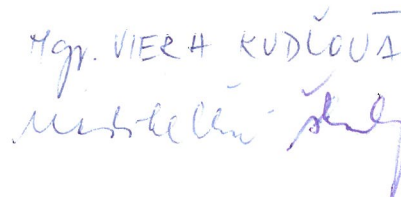 Mgr. VIERA KUDČOVÁ
riaditeľka školy